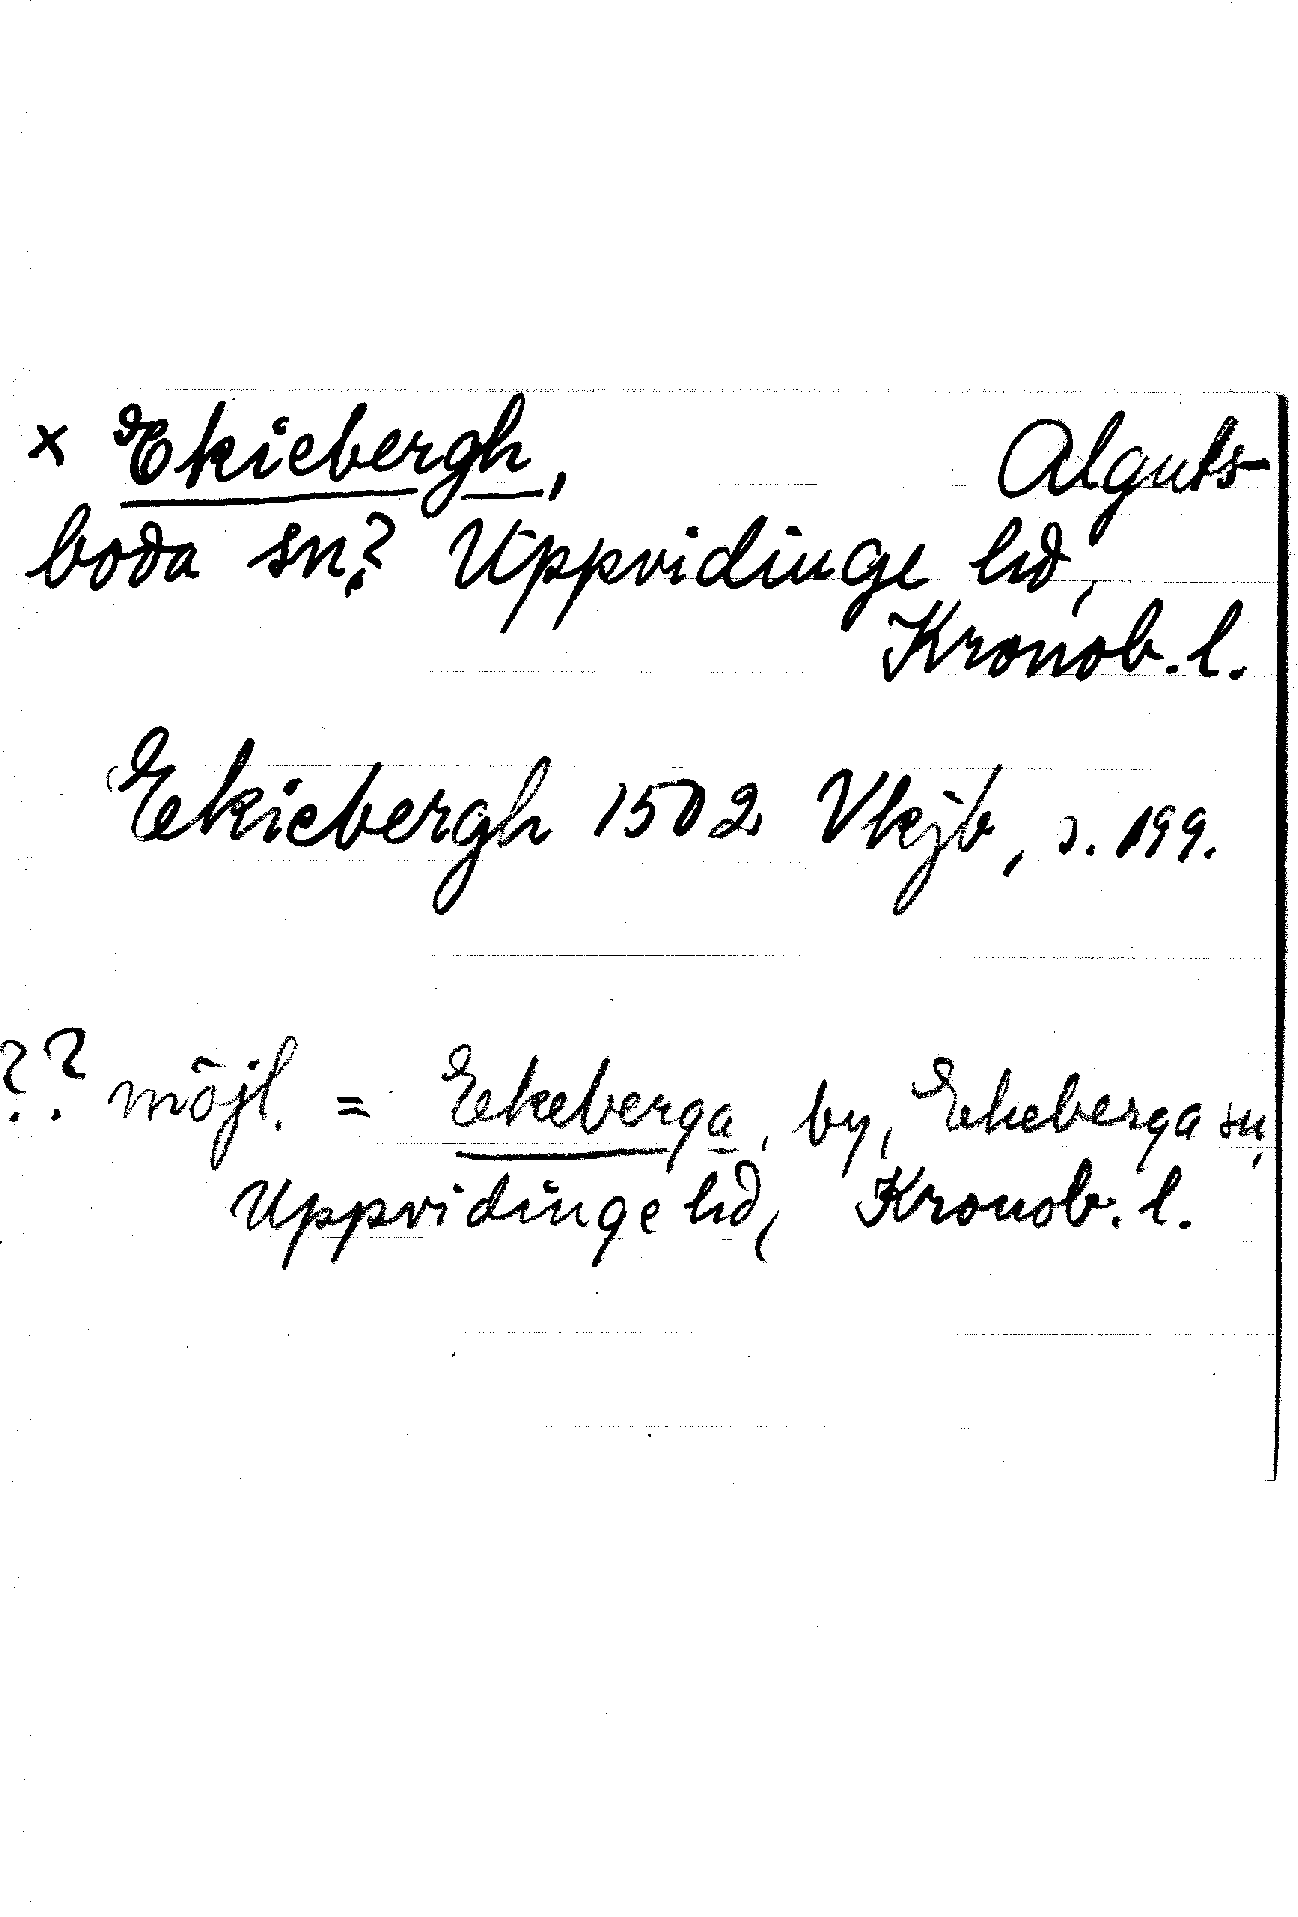 x Ekiebergh, Alguts-
boda sn? Uppvidinge hd,
Kronob. l.
Ekiebergh 1502 Vkjb, s. 199.
?? möjl. = Ekeberga, by, Ekeberga sn,
Uppvidinge hd, Kronob. l.